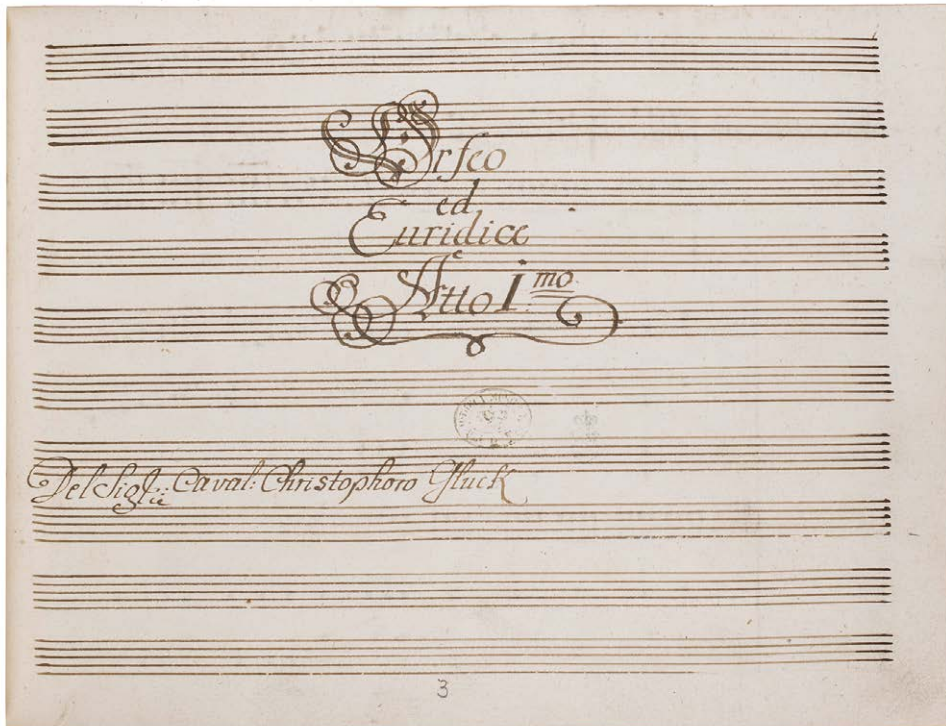 Orfeo
ed
Euridice
Atto I.mo
Del Sigl: Caval: Christophoro Gluck
3